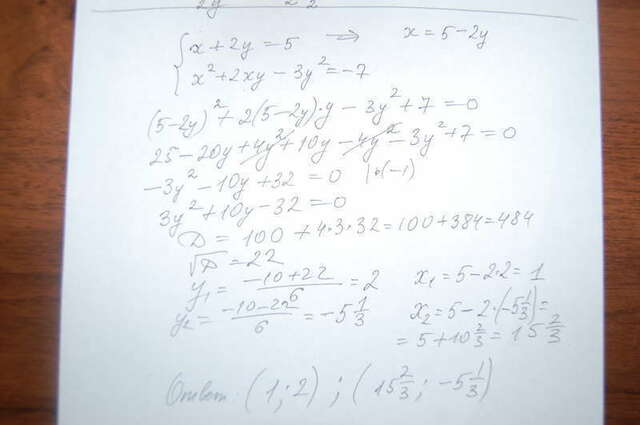 x + 2y = 5 ⇒ x = 5 - 2y
x² + 2xy - 3y² = -7
(5 - 2y)² + 2(5 - 2y)·y - 3y² + 7 = 0
25 - 20y + 4y² + 10y - 4y² - 3y² + 7 = 0
-3y² - 10y + 32 = 0 |·(-1)
3y² + 10y - 32 = 0
D = 100 + 4·3·32 = 100 + 384 = 484
√D = 22
y₁ = (-10 + 22)/6 = 2 x₁ = 5 - 2·2 = 1
y₂ = (-10 - 22)/6 = -5 1/3 x₂ = 5 - 2·(-5 1/3) =
= 5 + 10 2/3 = 15 2/3
Ответ: (1; 2) ; (15 2/3 ; -5 1/3)